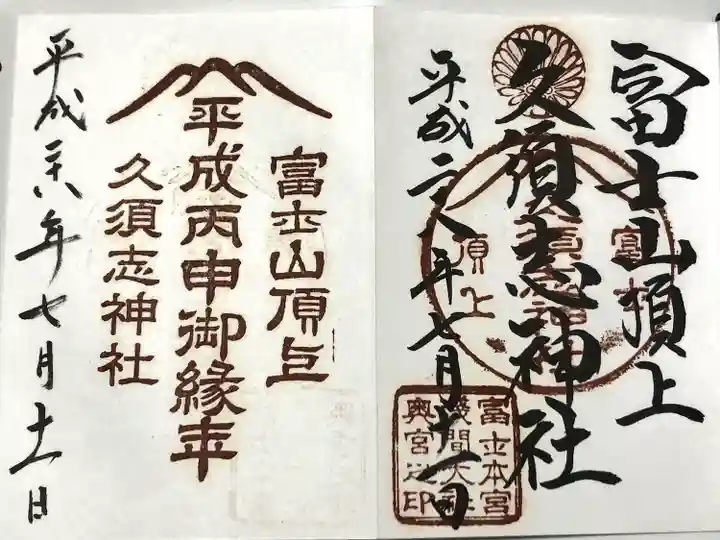 冨士山頂上
久須志神社
平成二八年七月十一日
富士
頂上
富士本宮
浅間大社
奥宮之印
富士山頂上
平成丙申御縁年
久須志神社
平成廿八年七月十一日